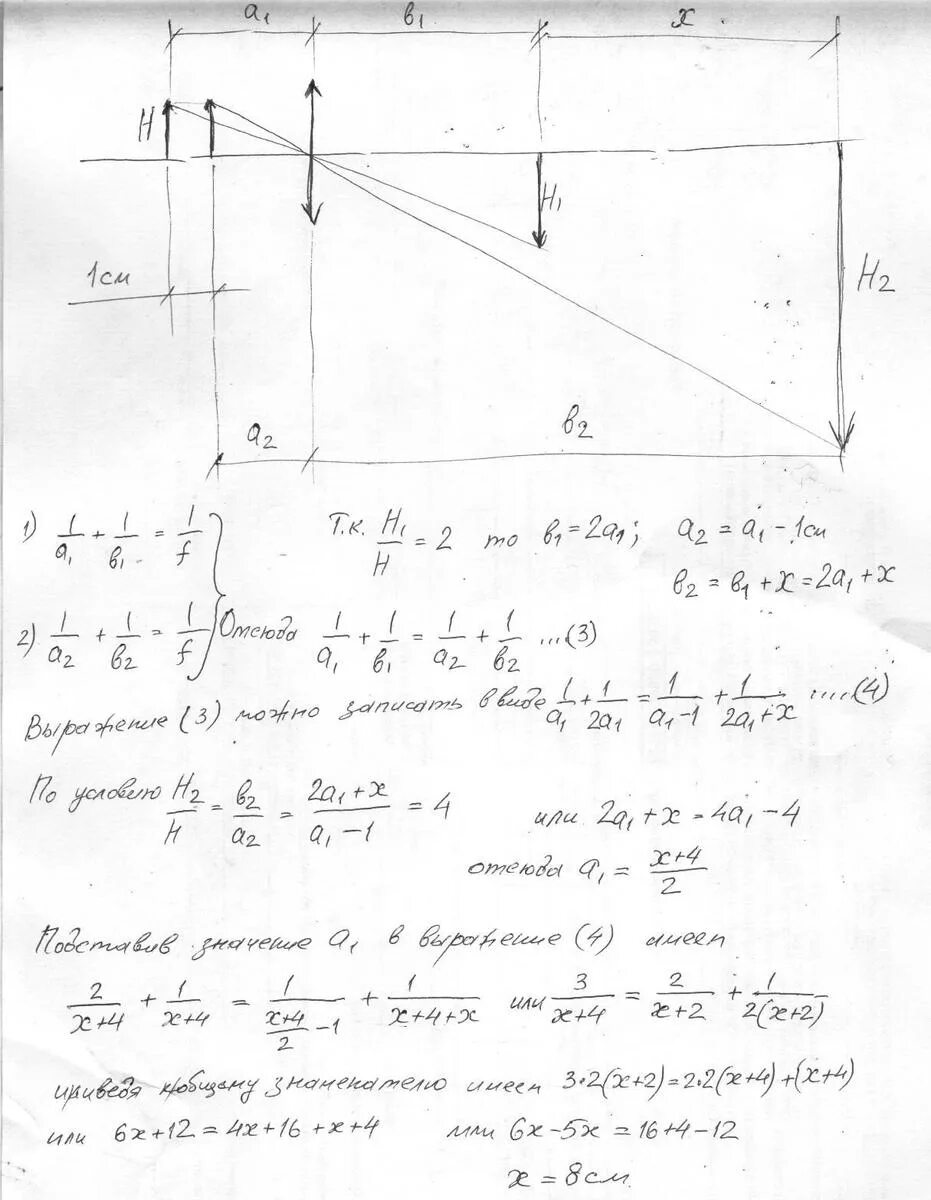 a₁ в₁ x
H
H₁
1см
H₂
a₂ в₂
1) 1/a₁ + 1/в₁ = 1/f Т.к. H₁/H = 2 то в₁ = 2a₁; a₂ = a₁ - 1см
в₂ = в₁ + x = 2a₁ + x
2) 1/a₂ + 1/в₂ = 1/f Отсюда 1/a₁ + 1/в₁ = 1/a₂ + 1/в₂ ...(3)
Выражение (3) можно записать в виде 1/a₁ + 1/2a₁ = 1/(a₁-1) + 1/(2a₁+x) ....(4)
По условию H₂/H = в₂/a₂ = (2a₁+x)/(a₁-1) = 4 или 2a₁+x = 4a₁-4
отсюда a₁ = (x+4)/2
Подставив значение a₁ в выражение (4) имеем
2/(x+4) + 1/(x+4) = 1/((x+4)/2 - 1) + 1/(x+4+x) или 3/(x+4) = 2/(x+2) + 1/2(x+2)
приведя к общему знаменателю имеем 3·2(x+2)=2·2(x+4)+(x+4)
или 6x+12=4x+16+x+4 или 6x-5x=16+4-12
x = 8см